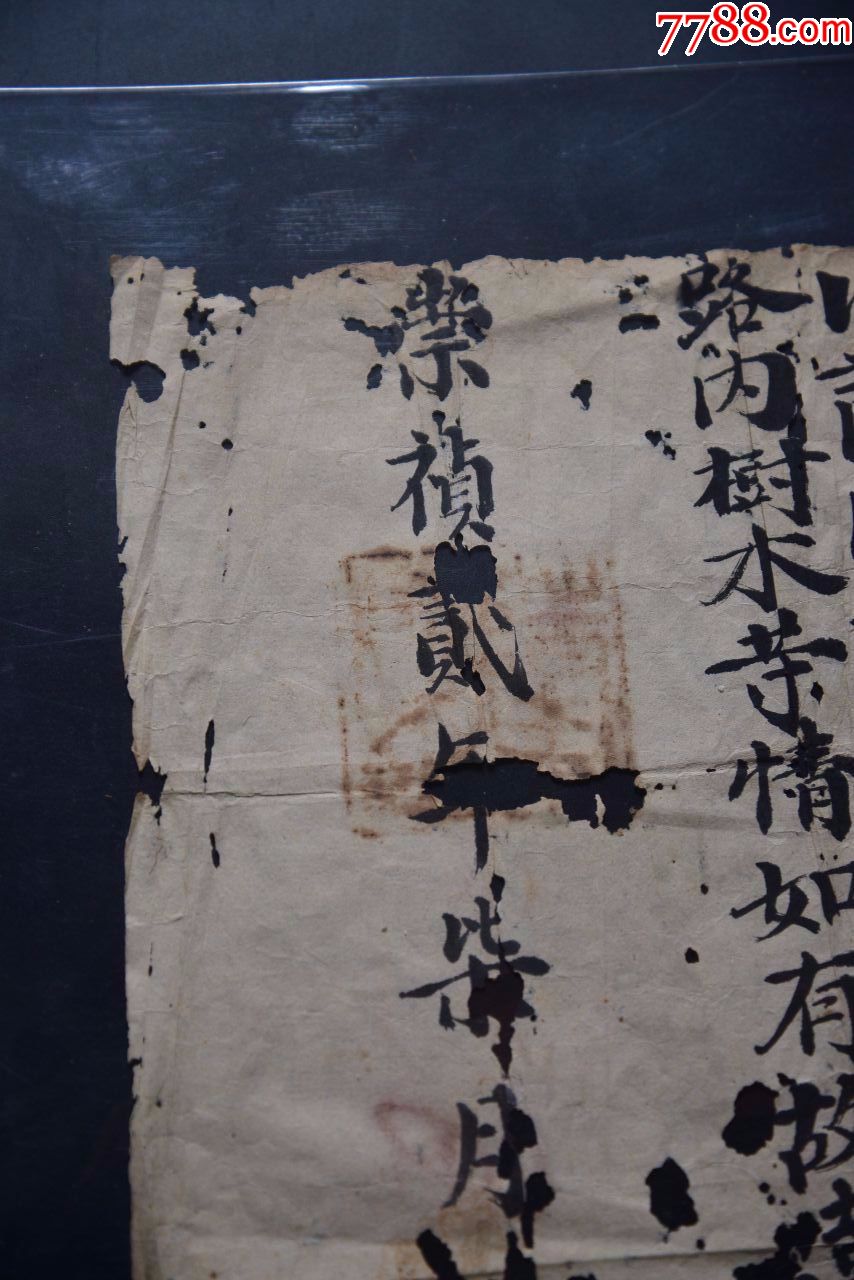 7788.com
路内樹水等情如有故
崇禎貳年柒月